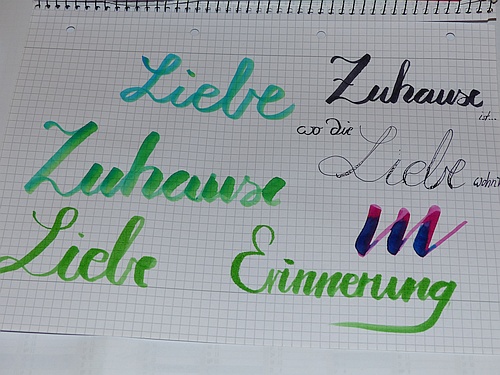 Liebe
Zuhause
ist...
wo die
Liebe wohnt
Zuhause
Liebe
Erinnerung